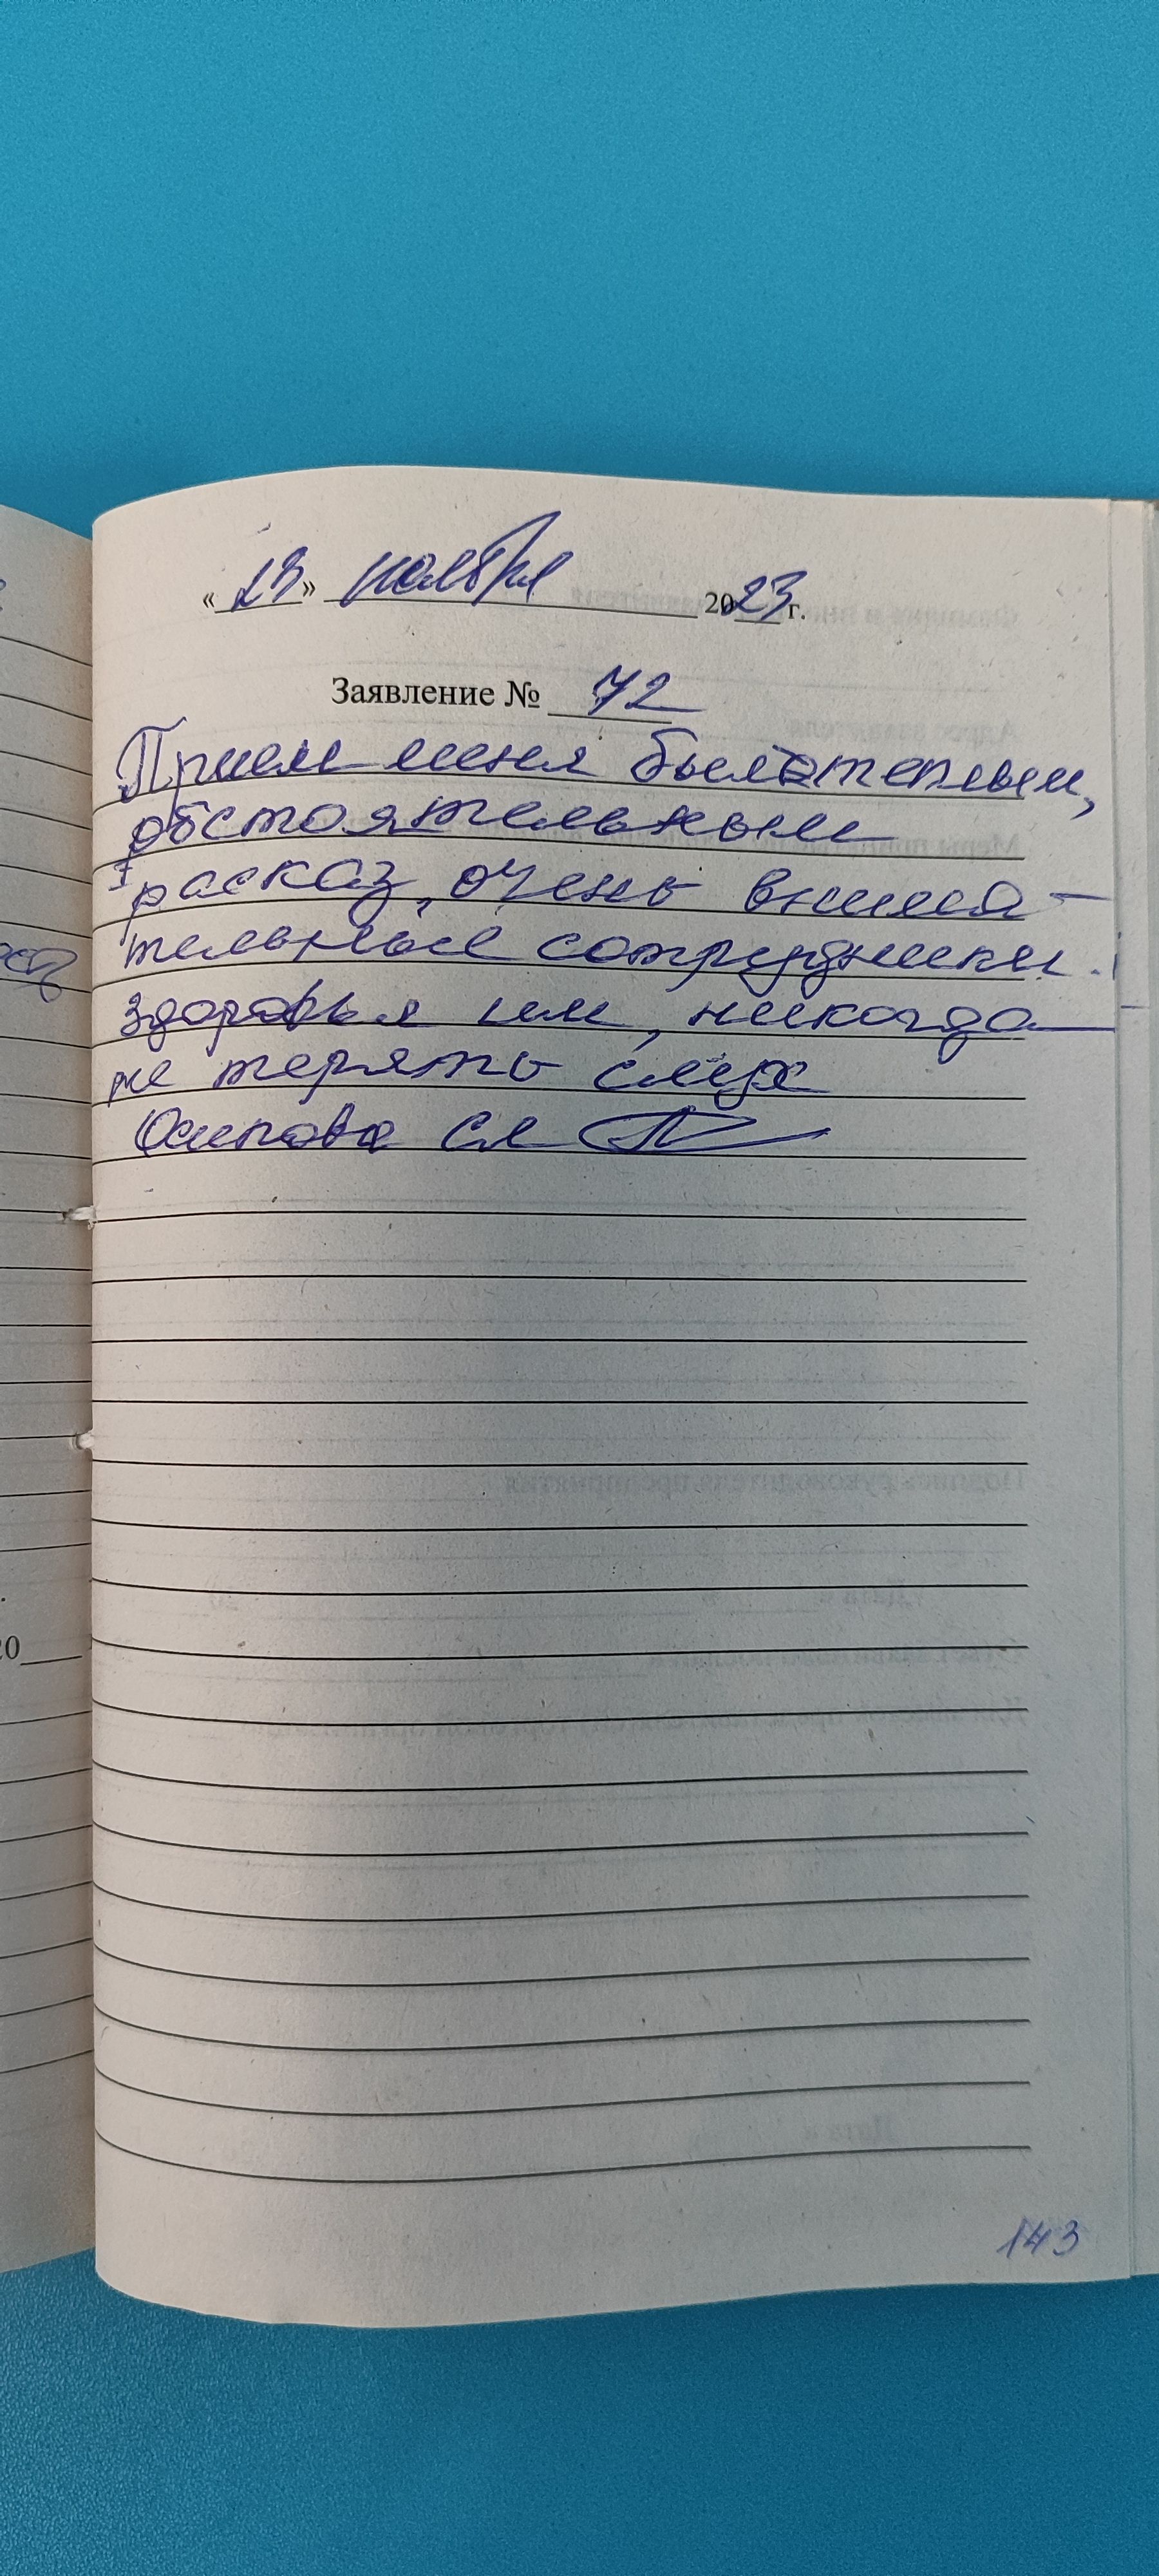 «23» ноября 2023 г.
Заявление № 72
Прием меня был теплым,
обстоятельным
расказ, очень внима-
тельные сотрудники.
Здоровья им, никогда
не терять слух
Осипова
143